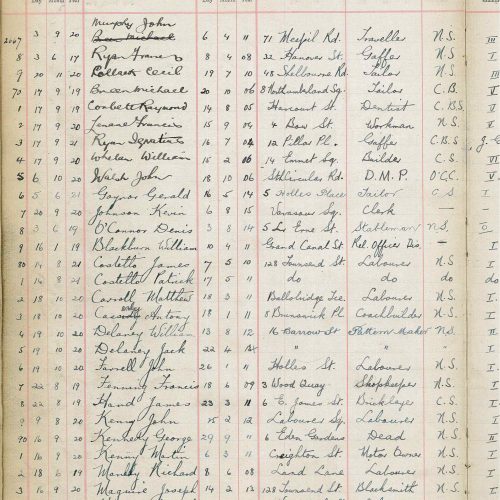 Day Month Year Day Month Year
Murphy John
2067 3 9 20 Green Michael 6 4 11 71 Mespil Rd. Traveller N.S. I
8 3 6 17 Ryan Francis 8 4 08 32 Hanover St. Gaffer N.S. I
9 20 11 20 Pollack Cecil 19 7 10 48 Shelbourne Rd. Tailor N.S. I
70 17 9 19 Breen Michael 20 10 06 8 Northumberland Sq. Tailor C.B. V
1 17 9 19 Corbett Raymond 14 8 05 Harcourt St. Dentist C.B.S. V
2 17 9 20 Lenane Francis 15 9 09 4 Bow St. Workman N.S. V
3 17 9 21 Ryan Ignatius 16 7 04 12 Pillar Pl. Gaffer C.B.S
4 17 9 20 Whelan William 15 2 06 14 Emmet Sq. Builder C.S. VI
5 6 10 20 Walsh John 18 10 06 Sth Circular Rd. D.M.P. O'C.C. V
6 5 6 21 Gaynor Gerald 16 5 14 5 Holles Place Tailor C.S I
7 20 9 20 Johnson Kevin 6 8 15 Sq. Clerk — —
8 3 6 19 O'Connor Denis 3 8 14 5 Lr Erne St. Stableman N.S.
9 16 1 19 Blackburn William 10 4 11 Grand Canal St Rel. Officer Dis. I
80 14 8 21 Costello James 7 5 10 128 Townsend St. Labourer N.S. I
1 14 8 21 Costello Patrick 17 5 do do do do
2 18 10 20 Carroll Matthew 18 3 11 Ballsbridge Tce. Labourer N.S. I
3 18 10 20 Antony 18 1 11 8 Brunswick Pl Coachbuilder N.S. I
4 19 10 20 Delaney William 13 8 12 16 Barrow St Pattern Maker N.S. II
5 19 10 20 Delaney Jack 22 4 " " " I
6 19 10 20 Farrell John 26 1 11 Holles St. Labourer N.S. I
7 22 8 19 Fenning Francis 18 6 09 3 Wood Quay Shopkeeper N.S. I
8 22 8 19 Hand James 23 3 11 6 E. James St. Bricklayer C.S. I
9 9 8 20 Kenny John 15 2 12 Labourer Sq. Labourer N.S. I
90 16 9 20 Kennedy George 29 9 11 6 Eden Gardens Dead N.S. II
1 16 9 20 Kenny Martin 6 3 11 Creighton St Motor Owner N.S. I
2 18 6 19 Richard 8 6 08 Laad Lane Labourer N.S. I
3 16 9 20 Maguire Joseph 14 2 13 128 Townsend St. Blacksmith N.S. I